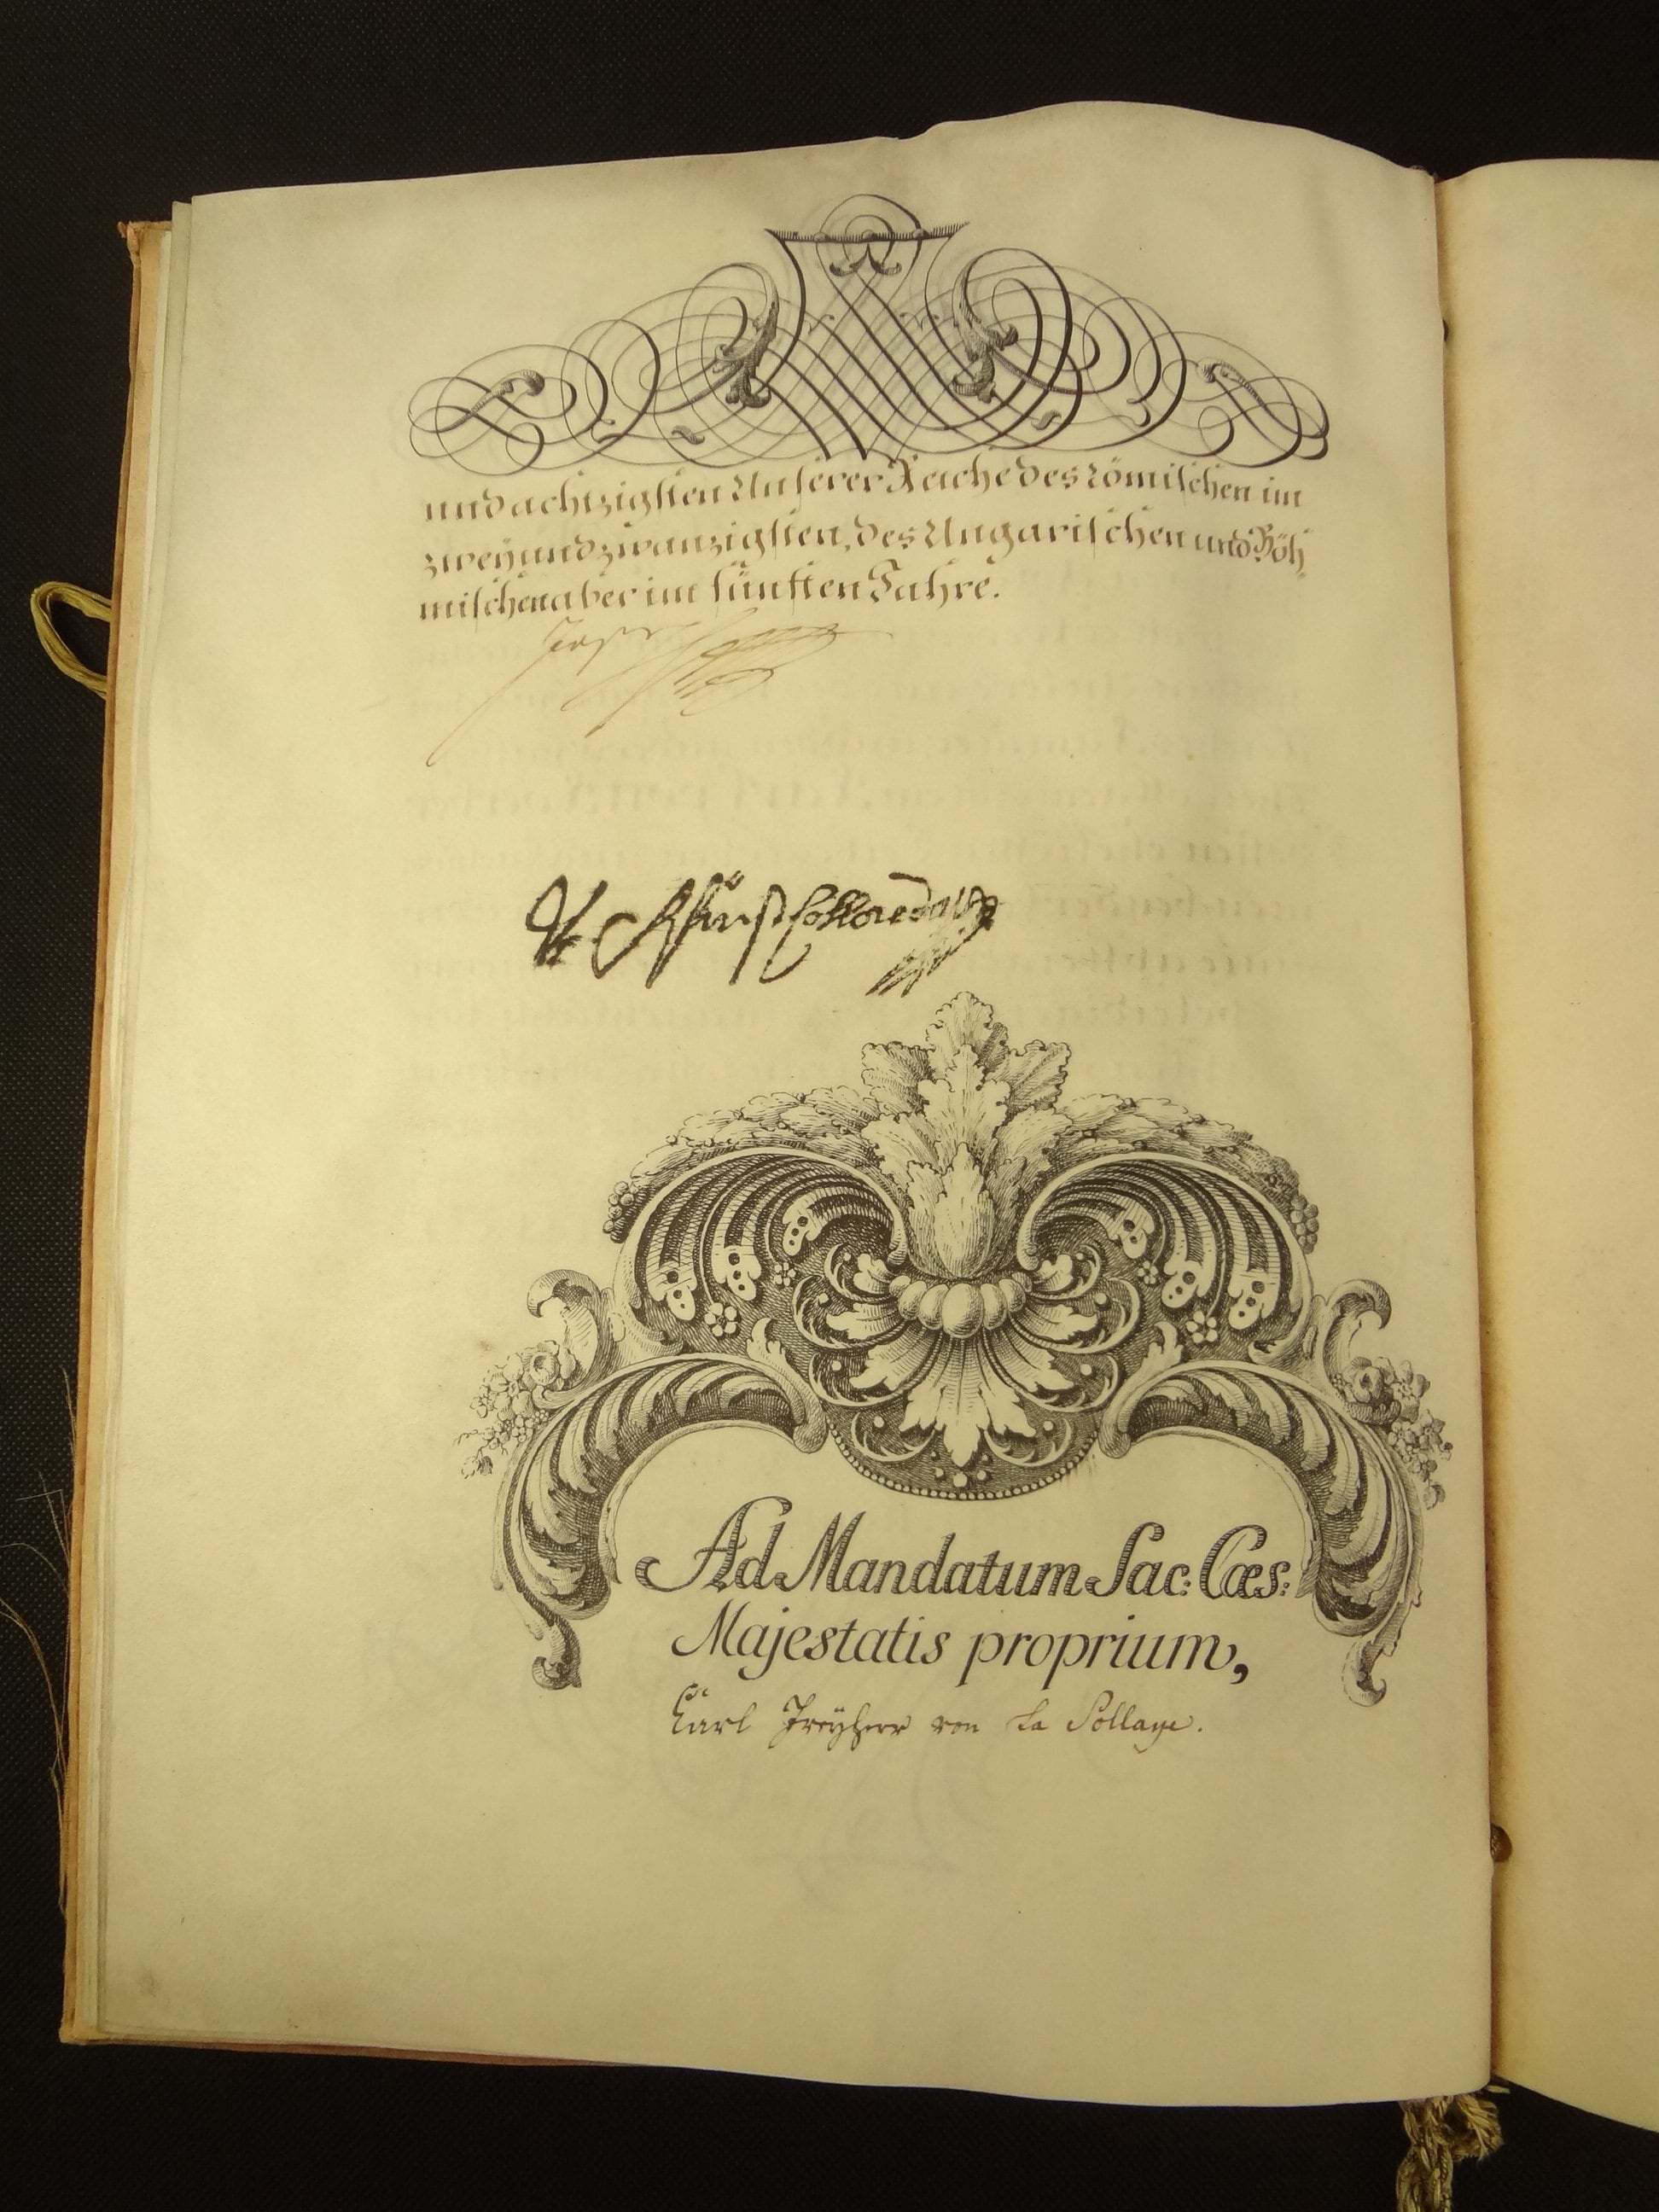 und achtzigsten Unserer Reiche des Römischen im
zweyundzwanzigsten, des Ungarischen und Böh
mischen aber im fünften Jahre.
Joseph
Vt Rfürst Colloredo
Ad Mandatum Sac: Cæs:
Majestatis proprium,
Carl Freyherr von La Sollaye.